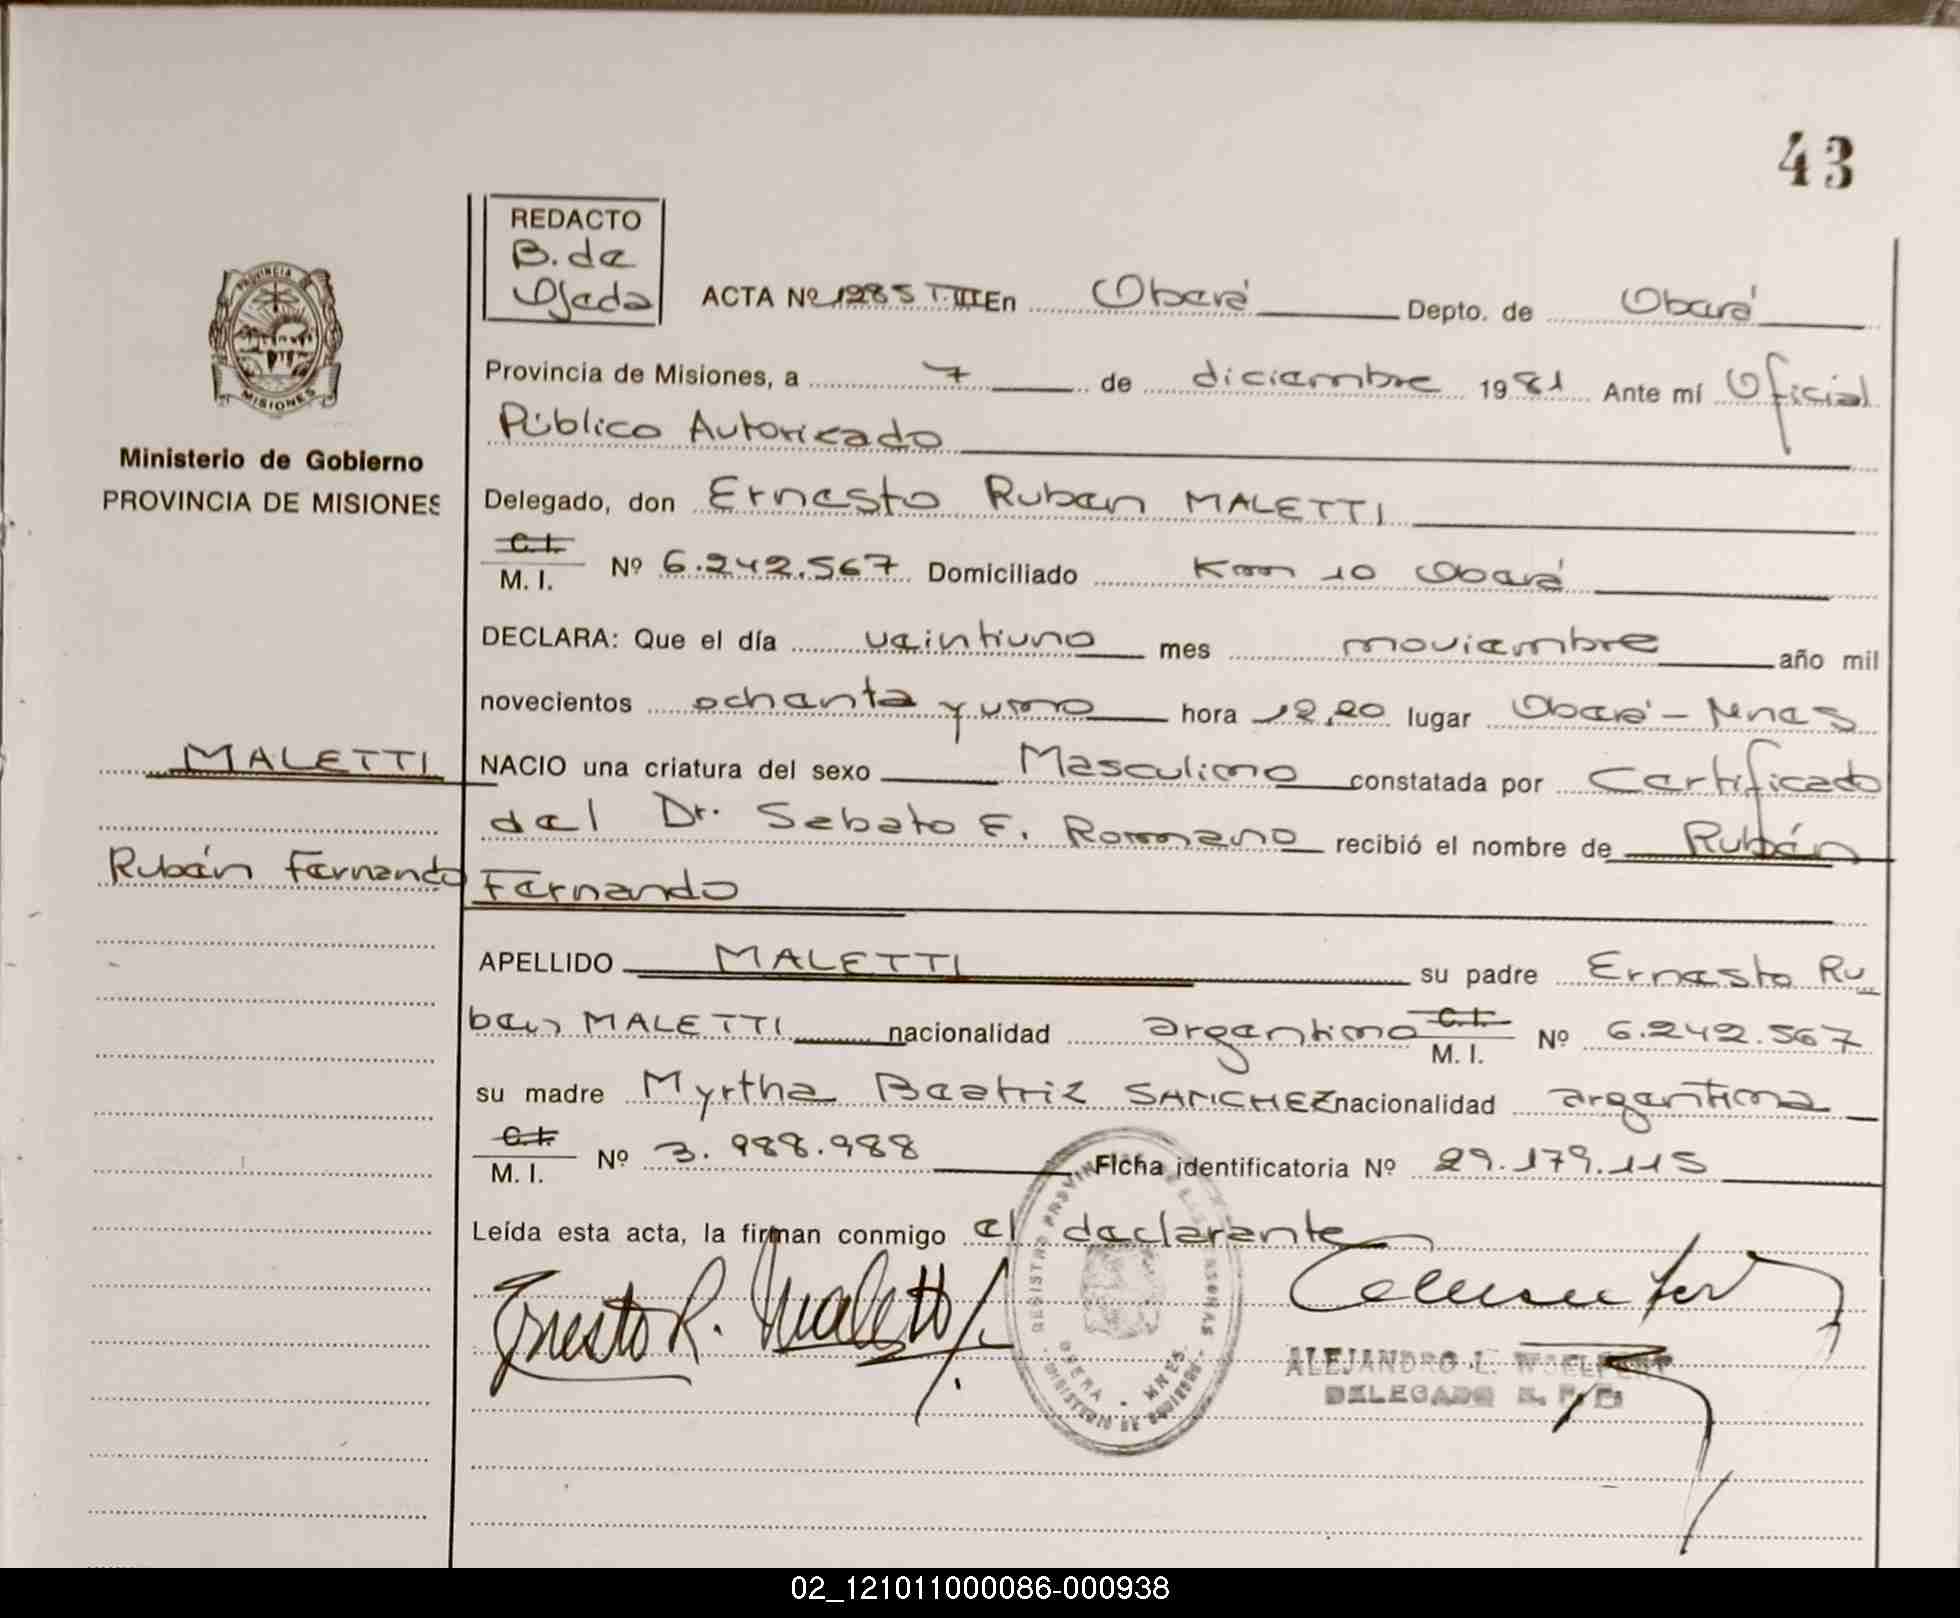 43
REDACTO
B. de
Ojeda
ACTA Nº 1285 T.III En Oberá Depto. de Oberá
PROVINCIA
MISIONES
Provincia de Misiones, a 7 de diciembre 1981 Ante mí Oficial
Público Autorizado
Ministerio de Gobierno
PROVINCIA DE MISIONES
Delegado, don Ernesto Ruben MALETTI
C.I.
M. I. Nº 6.242.567 Domiciliado Km 10 Oberá
DECLARA: Que el día veintiuno mes noviembre año mil
novecientos ochenta y uno hora 12,20 lugar Oberá - Mnes
MALETTI
NACIO una criatura del sexo Masculino constatada por Certificado
del Dr. Sabato F. Romano recibió el nombre de Rubén
Rubén Fernando
Fernando
APELLIDO MALETTI su padre Ernesto Ru
ben MALETTI nacionalidad argentino C.I. M. I. Nº 6.242.567
su madre Myrtha Beatriz SANCHEZ nacionalidad argentina
C.I.
M. I. Nº 3.988.988 Ficha identificatoria Nº 29.179.115
Leída esta acta, la firman conmigo el declarante
Ernesto R. Maletti
REGISTRO PROVINCIAL DE LAS PERSONAS
OBERA - MNES.
MINISTERIO DE GOBIERNO
ALEJANDRO L. WOELFERT
DELEGADO R. P. P.
02_121011000086-000938